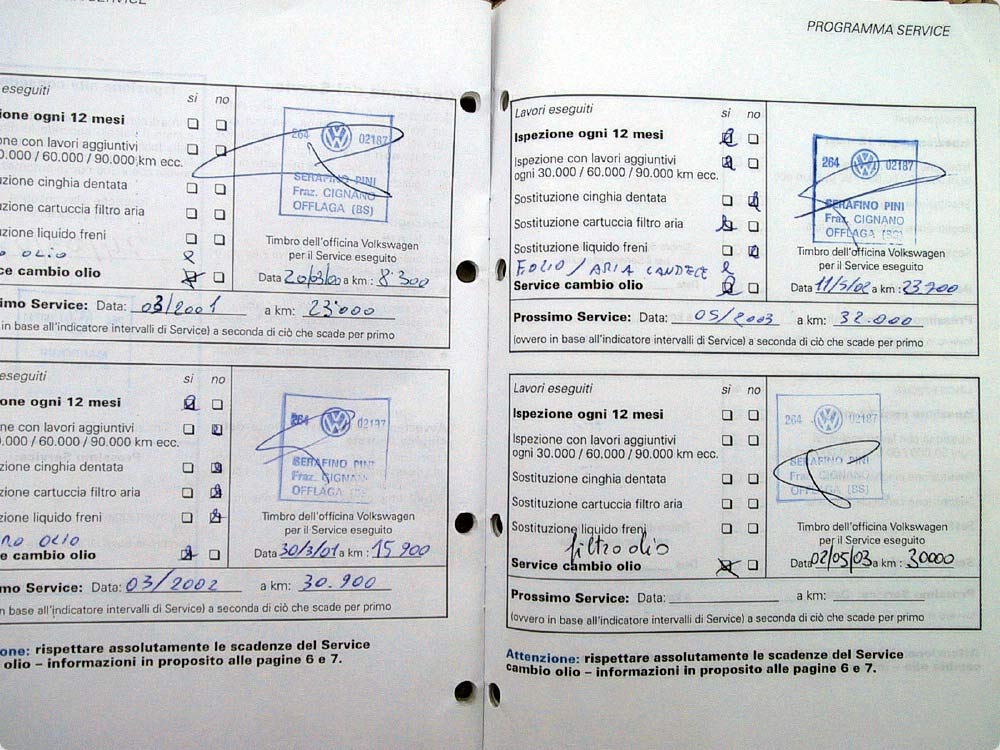 PROGRAMMA SERVICE
eseguiti
si no
ione ogni 12 mesi
zione con lavori aggiuntivi
0.000 / 60.000 / 90.000 km ecc.
uzione cinghia dentata
uzione cartuccia filtro aria
uzione liquido freni
OLIO
ce cambio olio
264 02187
SERAFINO PINI
Fraz. CIGNANO
OFFLAGA (BS)
Timbro dell'officina Volkswagen
per il Service eseguito
Data 20/03/00 a km: 8'300
simo Service: Data: 03/2001 a km: 23'000
in base all'indicatore intervalli di Service) a seconda di ciò che scade per primo
eseguiti
si no
one ogni 12 mesi
one con lavori aggiuntivi
0.000 / 60.000 / 90.000 km ecc.
zione cinghia dentata
zione cartuccia filtro aria
zione liquido freni
RO OLIO
e cambio olio
264 02187
SERAFINO PINI
Fraz. CIGNAN
OFFLAGA
Timbro dell'officina Volkswagen
per il Service eseguito
Data 30/3/01 a km: 15'900
simo Service: Data: 03/2002 a km: 30.900
in base all'indicatore intervalli di Service) a seconda di ciò che scade per primo
one: rispettare assolutamente le scadenze del Service
olio – informazioni in proposito alle pagine 6 e 7.
Lavori eseguiti
si no
Ispezione ogni 12 mesi
Ispezione con lavori aggiuntivi
ogni 30.000 / 60.000 / 90.000 km ecc.
Sostituzione cinghia dentata
Sostituzione cartuccia filtro aria
Sostituzione liquido freni
F.OLIO / ARIA CANDELE
Service cambio olio
264 02187
SERAFINO PINI
Fraz. CIGNANO
OFFLAGA (BS)
Timbro dell'officina Volkswagen
per il Service eseguito
Data 11/5/02 a km: 23'700
Prossimo Service: Data: 05/2003 a km: 32.000
(ovvero in base all'indicatore intervalli di Service) a seconda di ciò che scade per primo
Lavori eseguiti
si no
Ispezione ogni 12 mesi
Ispezione con lavori aggiuntivi
ogni 30.000 / 60.000 / 90.000 km ecc.
Sostituzione cinghia dentata
Sostituzione cartuccia filtro aria
Sostituzione liquido freni
filtro olio
Service cambio olio
264 02187
SERAFINO PINI
Fraz. CIGNANO
OFFLAGA (BS)
Timbro dell'officina Volkswagen
per il Service eseguito
Data 02/05/03 a km: 30000
Prossimo Service: Data: a km:
(ovvero in base all'indicatore intervalli di Service) a seconda di ciò che scade per primo
Attenzione: rispettare assolutamente le scadenze del Service
cambio olio – informazioni in proposito alle pagine 6 e 7.